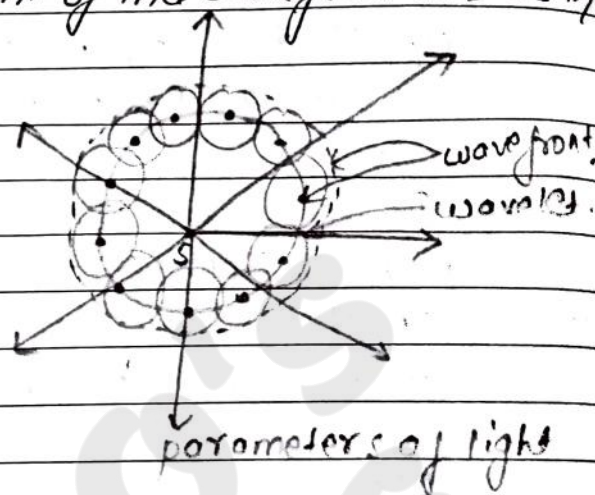 of the
wavefront
wavelets.
S
parameters of light